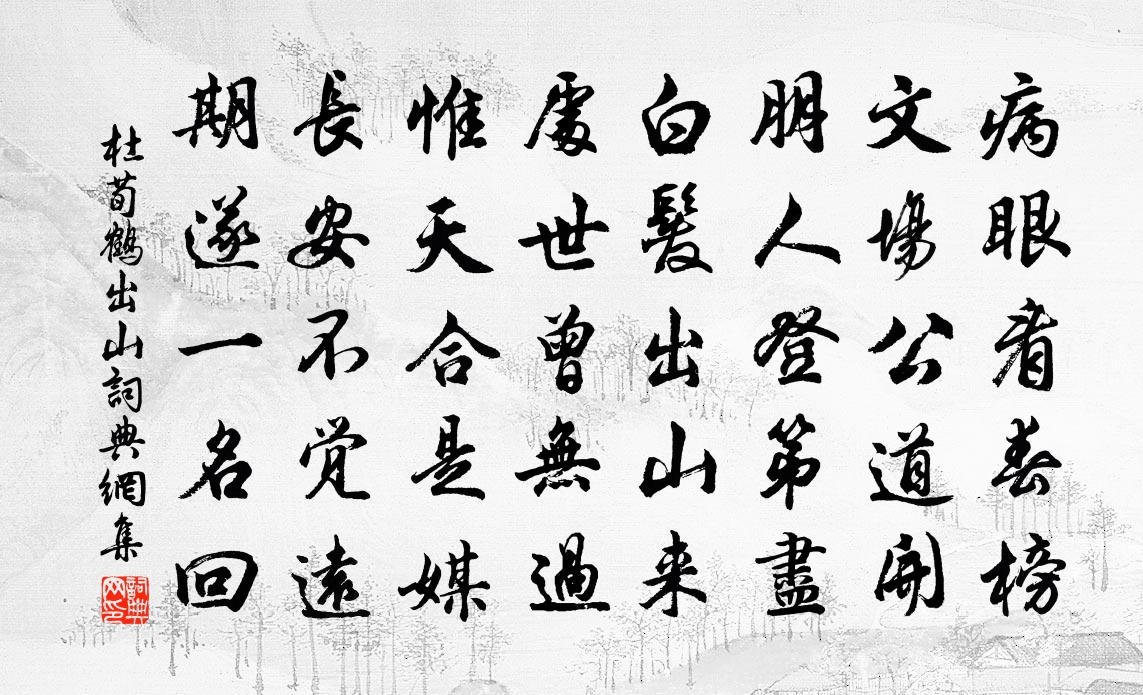 病眼看春榜
文場公道開
朋人登第盡
白髮出山来
處世曾無過
惟天合是媒
長安不覺遠
期遂一名回
杜荀鶴出山詞典網集
詞典网印